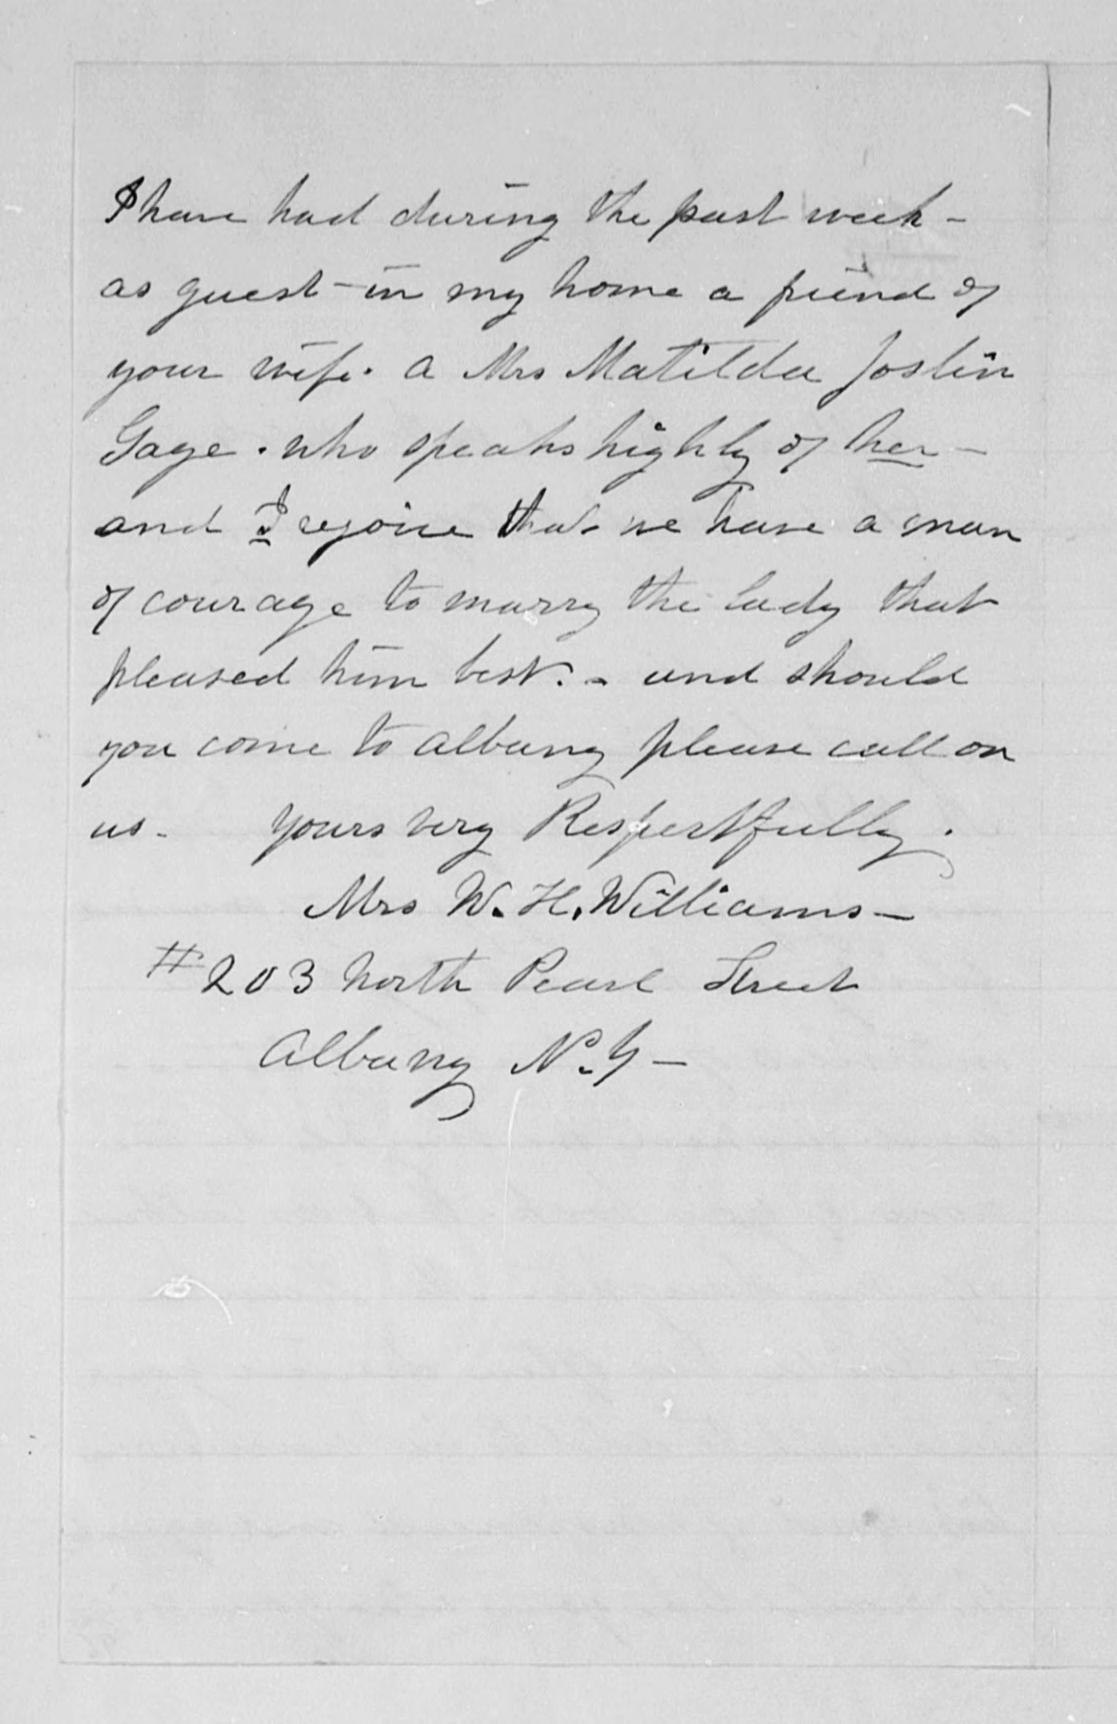 I have had during the past week -
as guest - in my home a friend of
your wife. a Mrs Matilda Joslin
Gage. who speaks highly of her -
and I rejoice that we have a man
of courage to marry the lady that
pleased him best. - and should
you come to albany please call on
us - yours very Respectfully.
Mrs W. H. Williams -
#203 North Pearl Street
Albany N. Y -